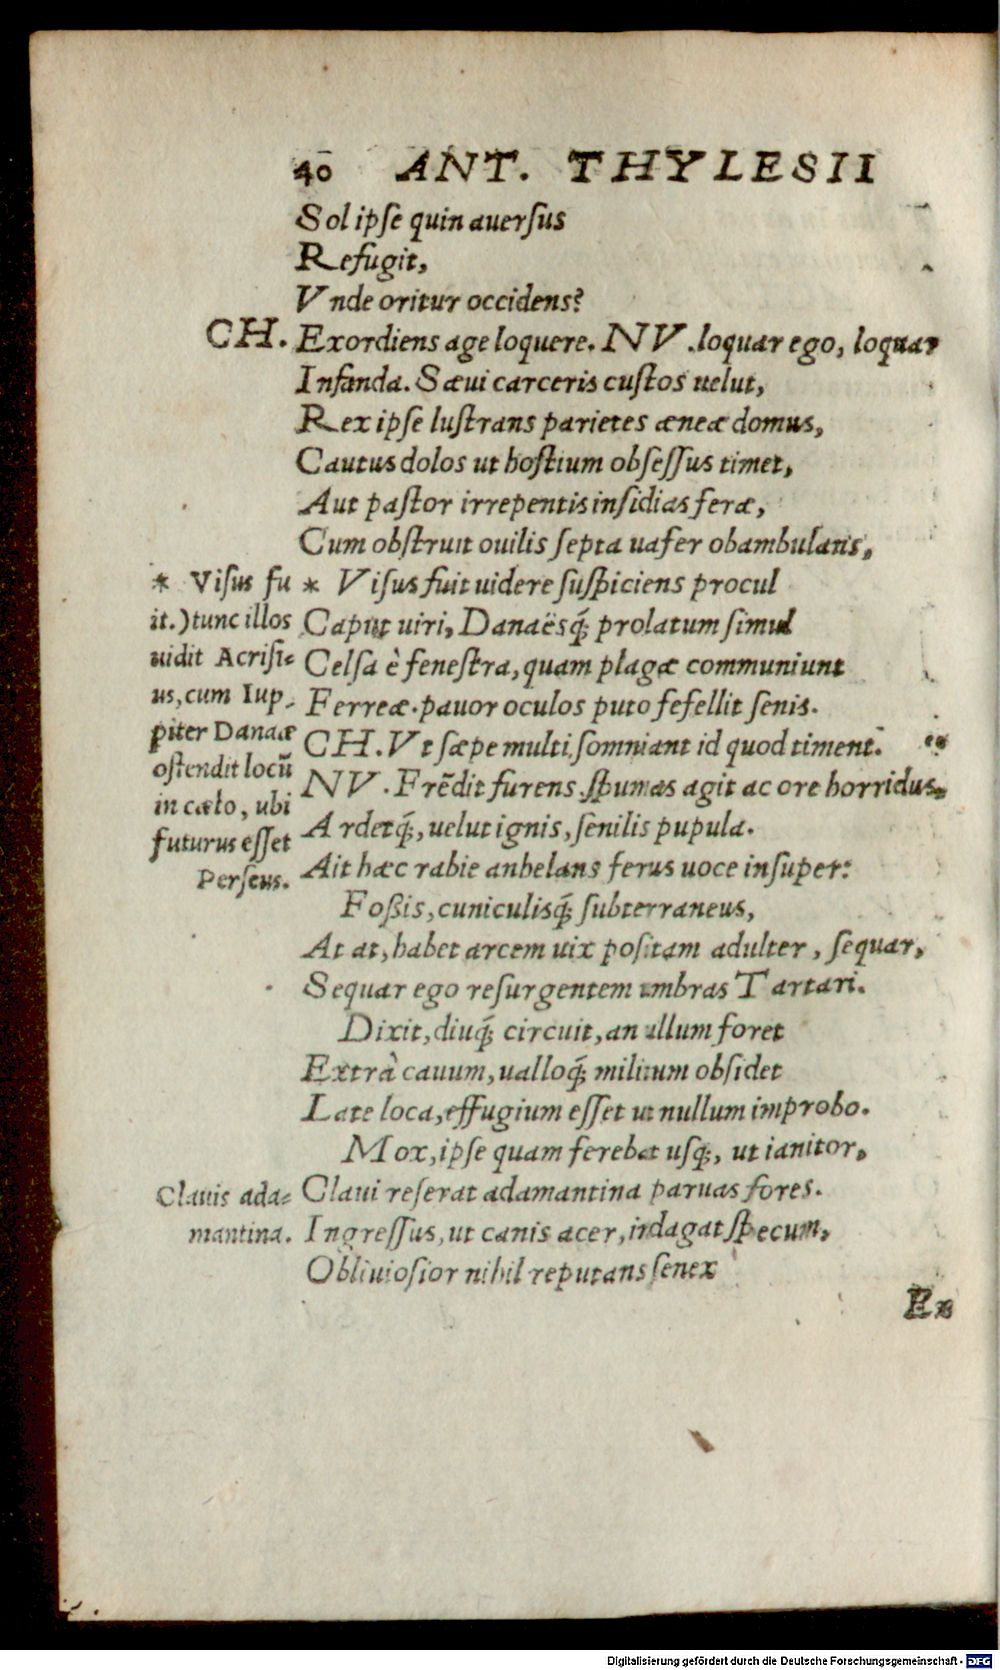 40 ANT. THYLESII
Sol ipſe quin auerſus
Refugit,
Vnde oritur occidens?
CH. Exordiens age loquere. NV. loquar ego, loquar
Infanda. Sæui carceris cuſtos uelut,
Rex ipſe luſtrans parietes æneæ domus,
Cautus dolos ut hoſtium obſeſſus timet,
Aut paſtor irrepentis inſidias feræ,
Cum obſtruit ouilis ſepta uafer obambulans,
* Viſus fuit uidere ſuſpiciens procul
Caput uiri, Danaësq́; prolatum ſimul
Celſa è feneſtra, quam plagæ communiunt
Ferreæ. pauor oculos puto fefellit ſenis.
CH. Vt ſæpe multi ſomniant id quod timent.
NV. Frẽdit furens ſpumas agit ac ore horridus,
Ardetq́;, uelut ignis, ſenilis pupula.
Ait hæc rabie anhelans ferus uoce inſuper:
Foßis, cuniculisq́; ſubterraneus,
At at, habet arcem uix poſitam adulter, ſequar,
Sequar ego reſurgentem umbras Tartari.
Dixit, diuq́; circuit, an ullum foret
Extrà cauum, ualloq́; militum obſidet
Late loca, effugium eſſet ut nullum improbo.
Mox, ipſe quam ferebat uſq;, ut ianitor,
Claui reſerat adamantina paruas fores.
Ingreſſus, ut canis acer, indagat ſpecum,
Obliuioſior nihil reputans ſenex
Ex
* Viſus fu
it.) tunc illos
uidit Acriſi⸗
us, cum Iup⸗
piter Danaæ
oſtendit locũ
in cælo, ubi
futurus eſſet
Perſeus.
Clauis ada⸗
mantina.
Digitalisierung gefördert durch die Deutsche Forschungsgemeinschaft - DFG